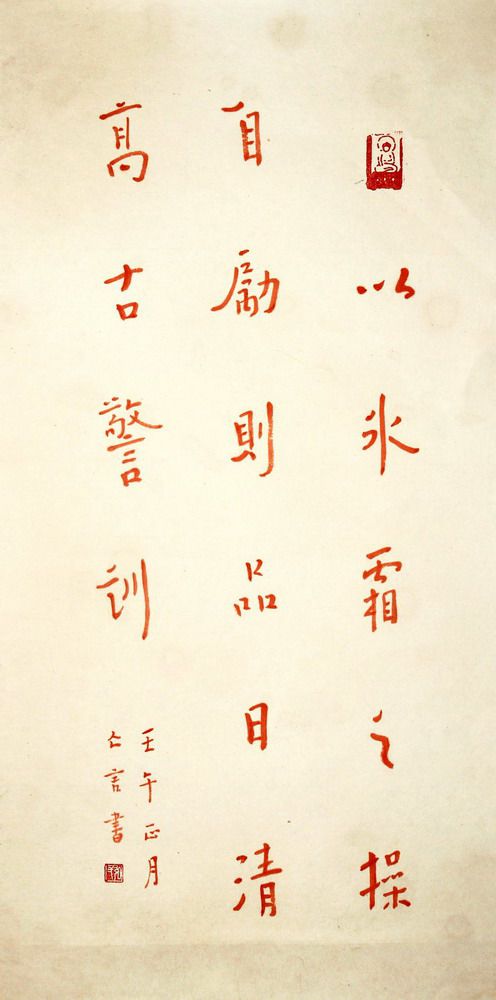 以冰霜之操
自勵則品日清
高古警訓
壬午正月
亡言書